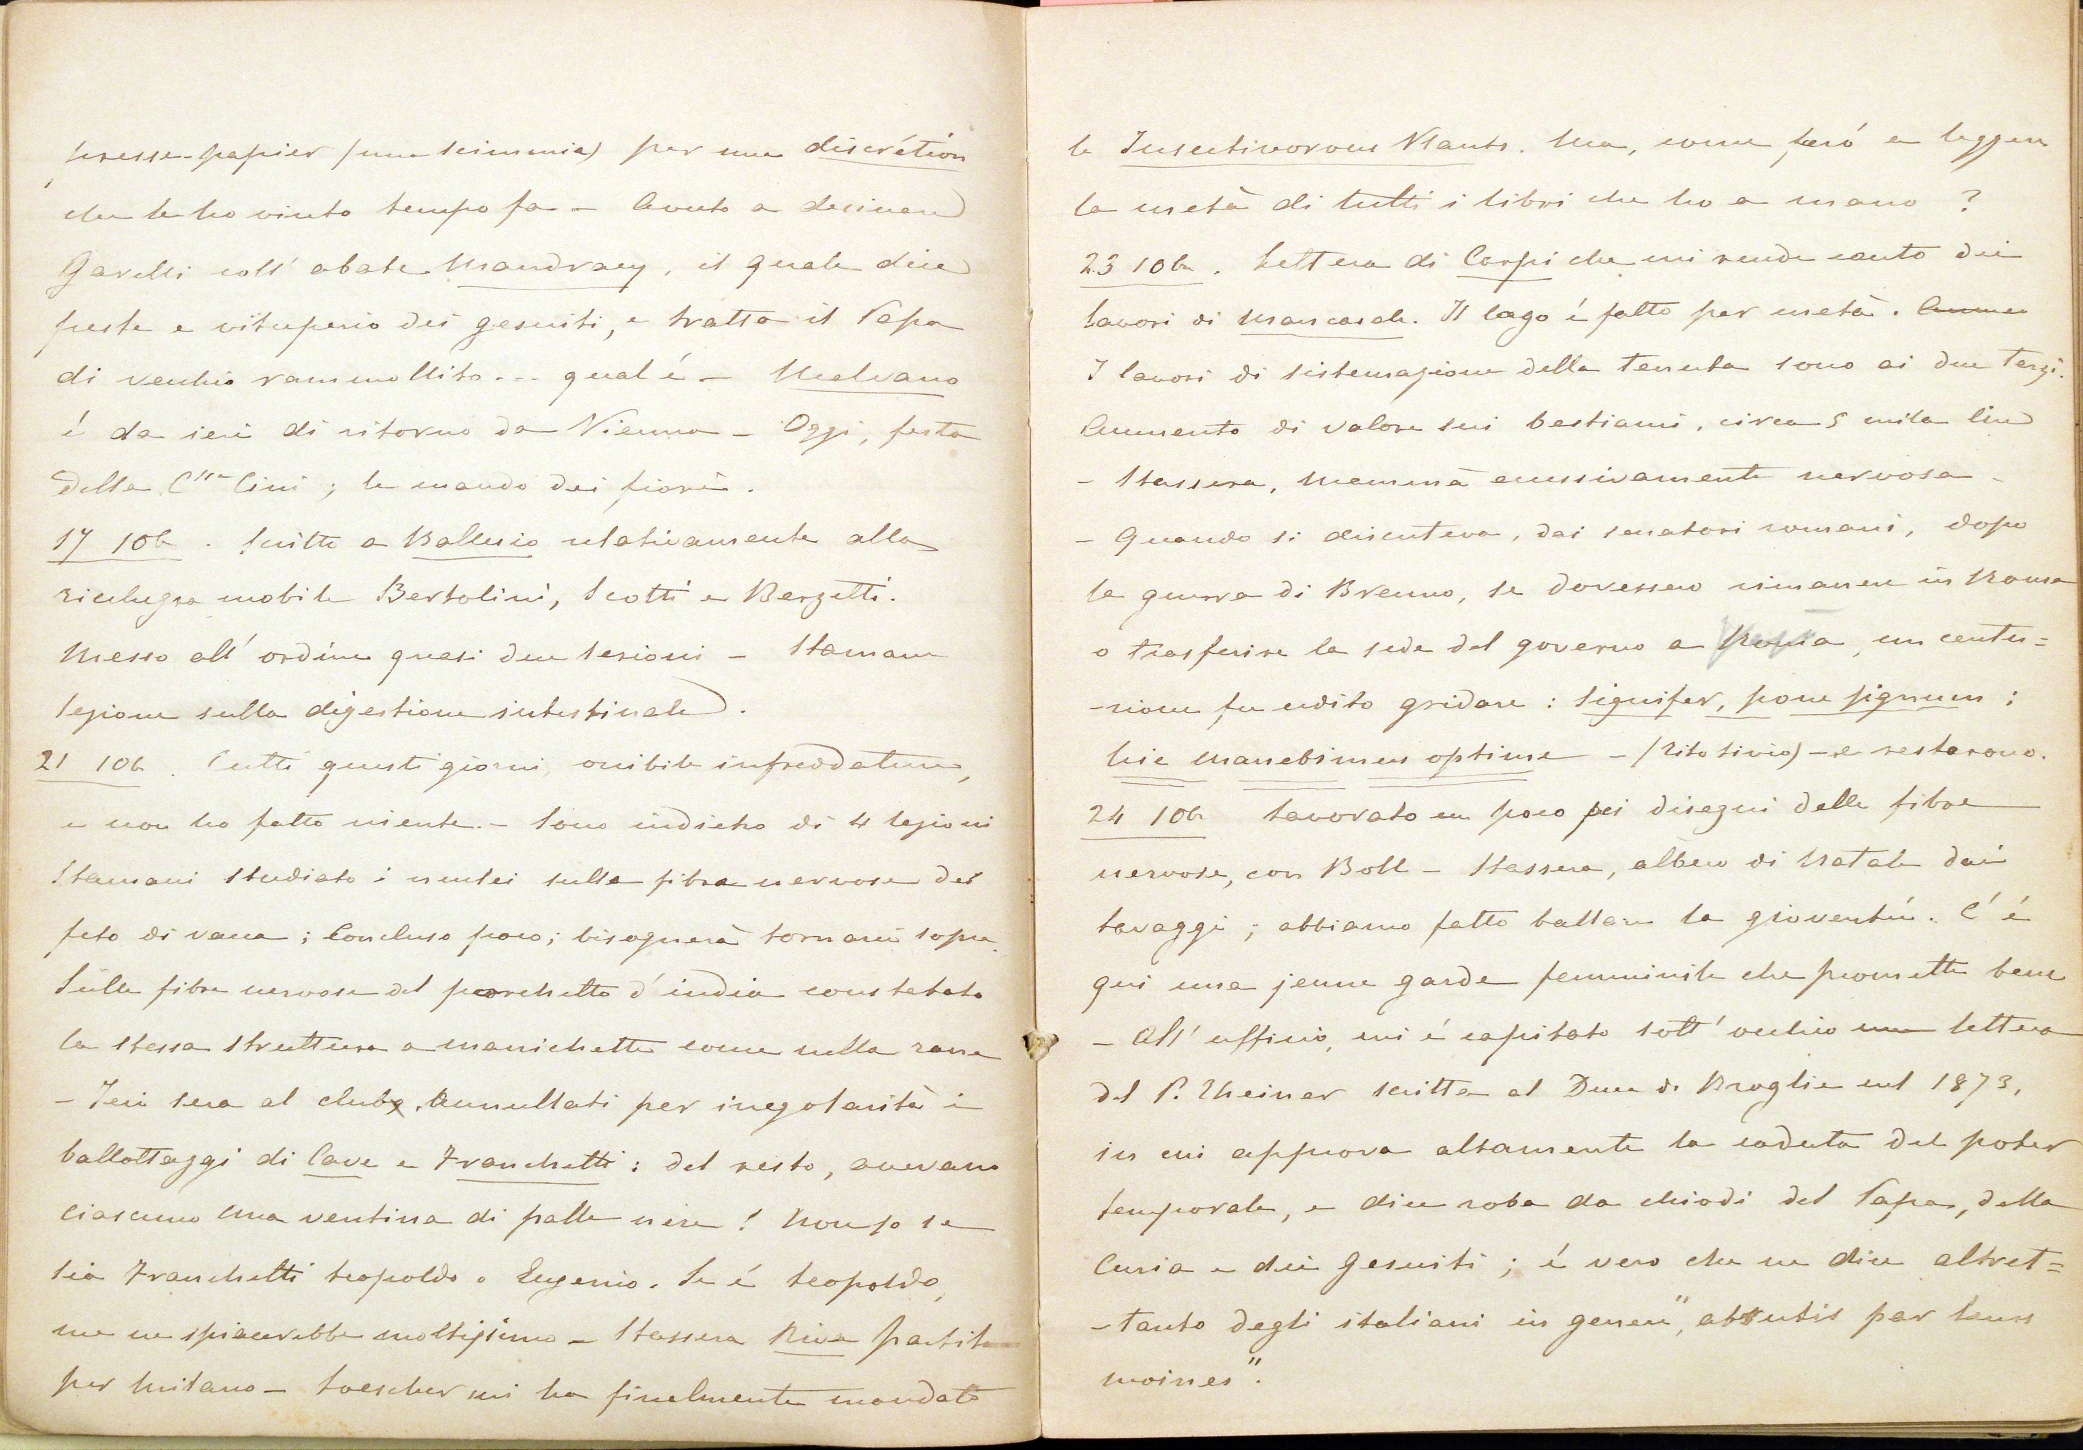 presse-papier (une scimmia) per una discrétion
che le ho vinto tempo fa - Avuto a desinare
Garelli coll' abate Mandracy, il quale dice
peste e vituperio dei gesuiti, e tratta il Papa
di vecchio rammollito... qual é - Malvano
é da ieri di ritorno da Vienna - Oggi, festa
della C.ssa Cini ; le mando dei fiori.
17 10b . Scritto a Ballerio relativamente alla
ricchezza mobile Bertolini, Scotti e Berzetti.
Messo all' ordine quasi due lezioni - Stamane
lezione sulla digestione intestinale.
21 10b . Tutti questi giorni, orribile infreddatura,
e non ho fatto niente. - Sono indietro di 4 lezioni
Stamani studiato i nuclei sulla fibra nervosa del
feto di vacca ; Concluso poco ; bisognerà tornarci sopra.
Sulla fibra nervosa del porchetto d'india constatata
la stessa struttura a manichetti come nella rana
- Ieri sera al club. Annullati per irregolarità i
ballottaggi di Cave e Franchetti : del resto, avevano
ciascuno una ventina di palle nere ! Non so se
sia Franchetti Leopoldo o Eugenio. Se é Leopoldo,
me ne spiacerebbe moltissimo - Stassera Riva partito
per Milano - Loescher mi ha finalmente mandato
le Insectivorous Plants. Ma, come farò a leggere
la metà di tutti i libri che ho a mano ?
23 10b . Lettera di Carpi che mi rende conto dei
lavori di Mancasale. Il lago é fatto per metà.
I lavori di sistemazione della tenuta sono ai due terzi.
Aumento di valore sui bestiami, circa 5 mila lire
- Stassera, Mammà eccessivamente nervosa -
- Quando si discuteva, dai senatori romani, dopo
la guerra di Brenno, se dovessero rimanere in Roma
o trasferire la sede del governo a , un centu=
-rione fu udito gridare : Signifer, pone signum ;
hic manebimus optime - (Tito Livio) - e restarono.
24 10b Lavorato un poco pei disegni delle fibre
nervose, con Boll - Stassera, albero di Natale dai
Lavaggi ; abbiamo fatto ballare la gioventù. C'é
qui una jeune garde femminile che promette bene
- All' uffizio, mi é capitato sott' occhio una lettera
del P. Theiner scritta al Duca di Broglie nel 1873,
in cui approva altamente la caduta del poter
temporale, e dice roba da chiodi del Papa, della
Curia e dei Gesuiti ; é vero che ne dice altret=
-tanto degli italiani in genere "abrutis par leurs
moines".